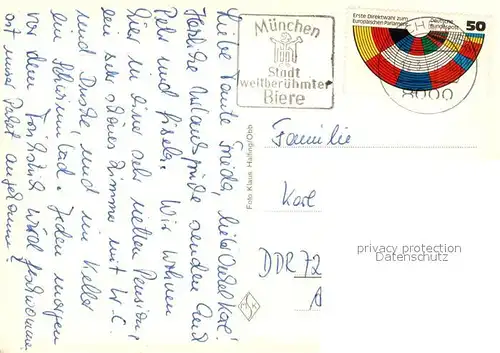 Liebe Tante Frieda, lieber Onkel Karl!
Herzliche Urlaubsgrüße senden Euch
Peter und Gisela. Wir wohnen
hier in einer sehr netten Pension,
ein sehr schönes Zimmer mit W.C.
und Dusche, und im Keller
ein Schwimmbad. Jeden morgen
vor dem Frühstück wird geschwommen.
Ist unser Paket angekommen?
München
Stadt
weltberühmter
Biere
Erste Direktwahl zum
Europäischen Parlament
Deutsche
Bundespost
50
8000
Foto Klaus, Halfing/Obb
Familie
Karl
DDR 72
privacy protection
Datenschutz